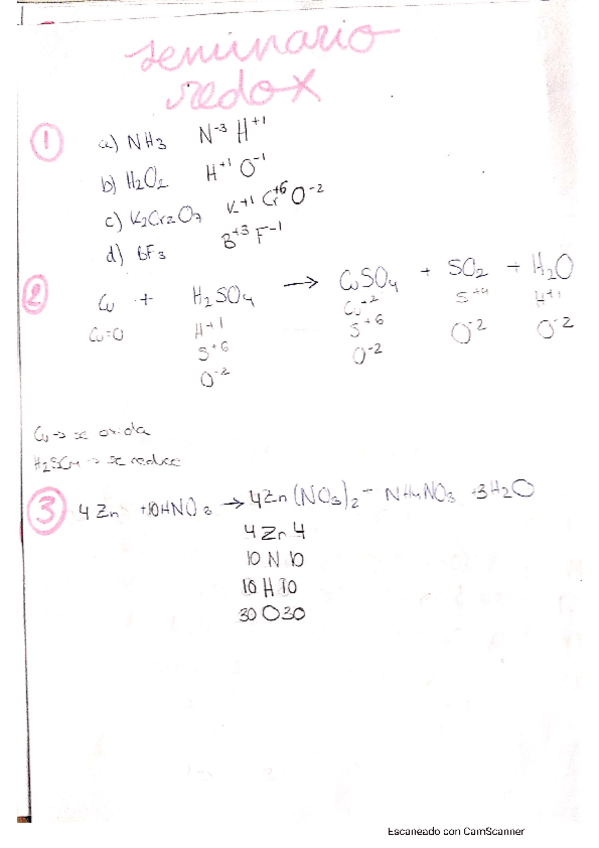 seminario
redox
1
a) NH3 N-3 H+1
b) H2O2 H+1 O-1
c) K2Cr2O7 K+1 Cr+6 O-2
d) BF3 B+3 F-1
2 Cu + H2SO4 → CuSO4 + SO2 + H2O
Cu=0 H+1 Cu+2 S+4 H+1
S+6 S+6 O-2 O-2
O-2 O-2
Cu → se oxida
H2SO4 → se reduce
3 4 Zn +10HNO3 → 4Zn(NO3)2 - NH4NO3 - 3H2O
4 Zn 4
10 N 10
10 H 10
30 O 30
Escaneado con CamScanner